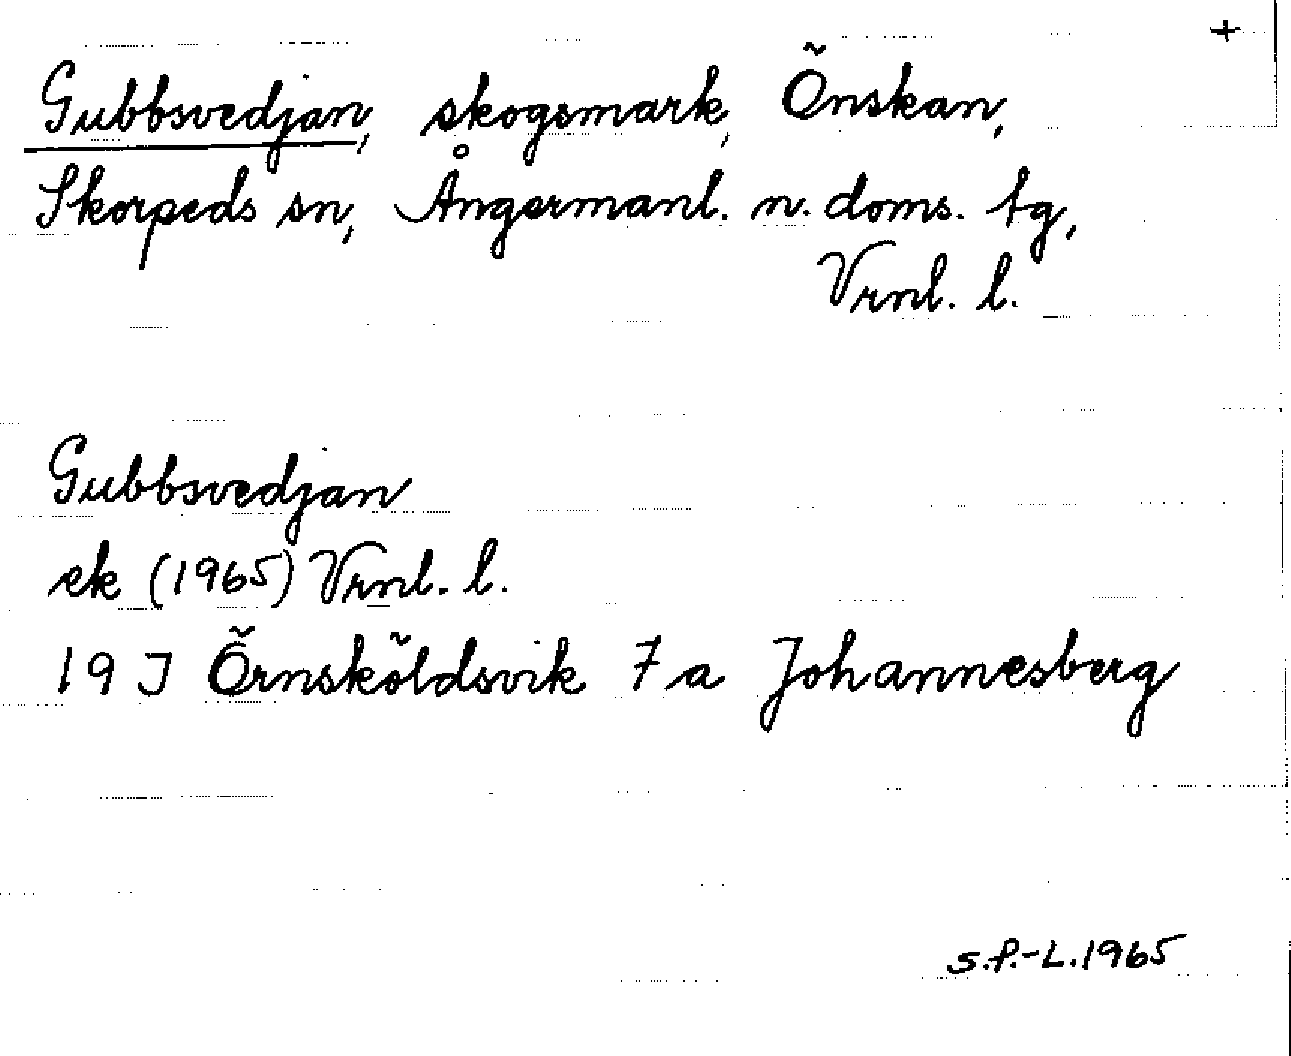 +
Gubbsvedjan, skogsmark, Önskan,
Skorpeds sn, Ångermanl. n. doms. tg,
Vrnl. l.
Gubbsvedjan
ek (1965) Vrnl. l.
19 J Örnsköldsvik 7 a Johannesberg
S.P.-L.1965